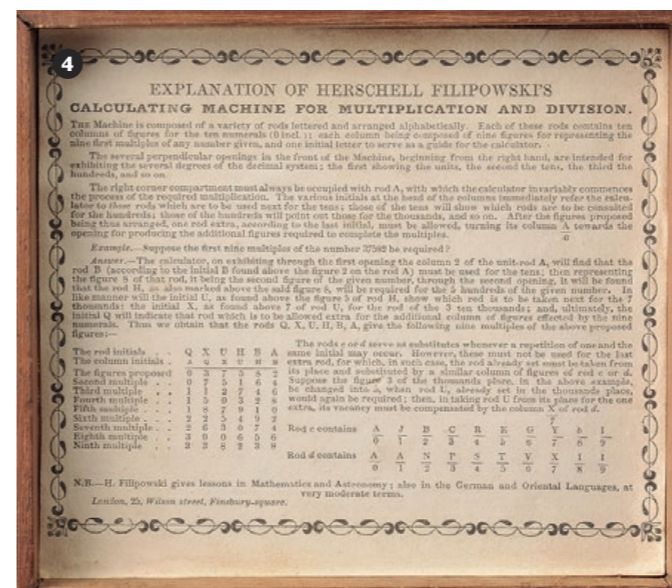 4
EXPLANATION OF HERSCHELL FILIPOWSKI'S
CALCULATING MACHINE FOR MULTIPLICATION AND DIVISION.
THE Machine is composed of a variety of rods lettered and arranged alphabetically. Each of these rods contains ten
columns of figures for the ten numerals (0 incl.); each column being composed of nine figures for representing the
nine first multiples of any number given, and one initial letter to serve as a guide for the calculator.
The several perpendicular openings in the front of the Machine, beginning from the right hand, are intended for
exhibiting the several degrees of the decimal system; the first showing the units, the second the tens, the third the
hundreds, and so on.
The right corner compartment must always be occupied with rod A, with which the calculator invariably commences
the process of the required multiplication. The various initials at the head of the columns immediately refer the calcu-
lator to those rods which are to be used next for the tens; those of the tens will show which rods are to be consulted
for the hundreds; those of the hundreds will point out those for the thousands, and so on. After the figures proposed
being thus arranged, one rod extra, according to the last initial, must be allowed, turning its column A/0 towards the
opening for producing the additional figures required to complete the multiples.
Example.—Suppose the first nine multiples of the number 37582 be required?
Answer.—The calculator, on exhibiting through the first opening the column 2 of the unit-rod A, will find that the
rod B (according to the initial B found above the figure 2 on the rod A) must be used for the tens; then representing
the figure 8 of that rod, it being the second figure of the given number, through the second opening, it will be found
that the rod H, as also marked above the said figure 8, will be required for the 5 hundreds of the given number. In
like manner will the initial U, as found above the figure 5 of rod H, show which rod is to be taken next for the 7
thousands: the initial X, as found above 7 of rod U, for the rod of the 3 ten thousands; and, ultimately, the
initial Q will indicate that rod which is to be allowed extra for the additional column of figures effected by the nine
numerals. Thus we obtain that the rods Q, X, U, H, B, A, give the following nine multiples of the above proposed
figures:—
The rod initials . . Q X U H B A
The column initials . A Q X U H B
The figures proposed 0 3 7 5 8 2
Second multiple . . 0 7 5 1 6 4
Third multiple . . 1 1 2 7 4 6
Fourth multiple . . 1 5 0 3 2 8
Fifth multiple . . 1 8 7 9 1 0
Sixth multiple . . 2 2 5 4 9 2
Seventh multiple . . 2 6 3 0 7 4
Eighth multiple . . 3 0 0 6 5 6
Ninth multiple . . 3 3 8 2 3 8
The rods c or d serve as substitutes whenever a repetition of one and the
same initial may occur. However, these must not be used for the last
extra rod, for which, in such case, the rod already set must be taken from
its place and substituted by a similar column of figures of red c or d.
Suppose the figure 3 of the thousands place, in the above example,
be changed into when rod U, already set in the thousands place,
would again be required; then, in taking rod U from its place for the one
extra, its vacancy must be compensated by the column X/7 of rod d.
Rod c contains A J B C R E G Y b I
0 1 2 3 4 5 6 7 8 9
Rod d contains A A N P S T V X I I
0 1 2 3 4 5 6 7 8 9
N.B.—H. Filipowski gives lessons in Mathematics and Astronomy; also in the German and Oriental Languages, at
very moderate terms.
London, 25, Wilson street, Finsbury-square.